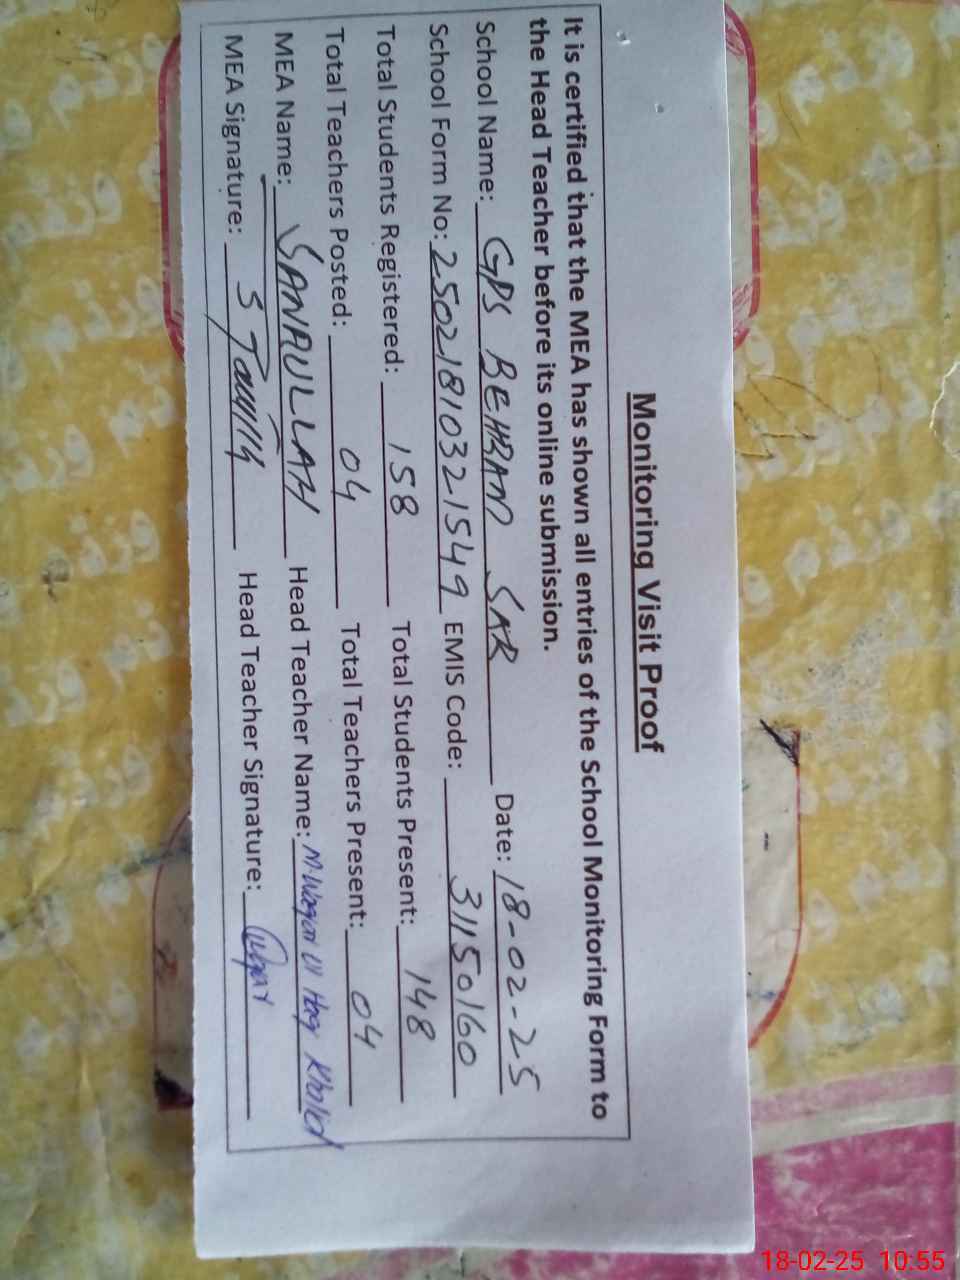 Monitoring Visit Proof
It is certified that the MEA has shown all entries of the School Monitoring Form to
the Head Teacher before its online submission.
School Name: GPS BEHRAM SAR Date: 18-02-25
School Form No: 25021810321549 EMIS Code: 31150160
Total Students Registered: 158 Total Students Present: 148
Total Teachers Posted: 04 Total Teachers Present: 04
MEA Name: SANAULLAH Head Teacher Name: M. Waqar Ul Haq Khalid
MEA Signature: Head Teacher Signature: Waqar
18-02-25 10:55